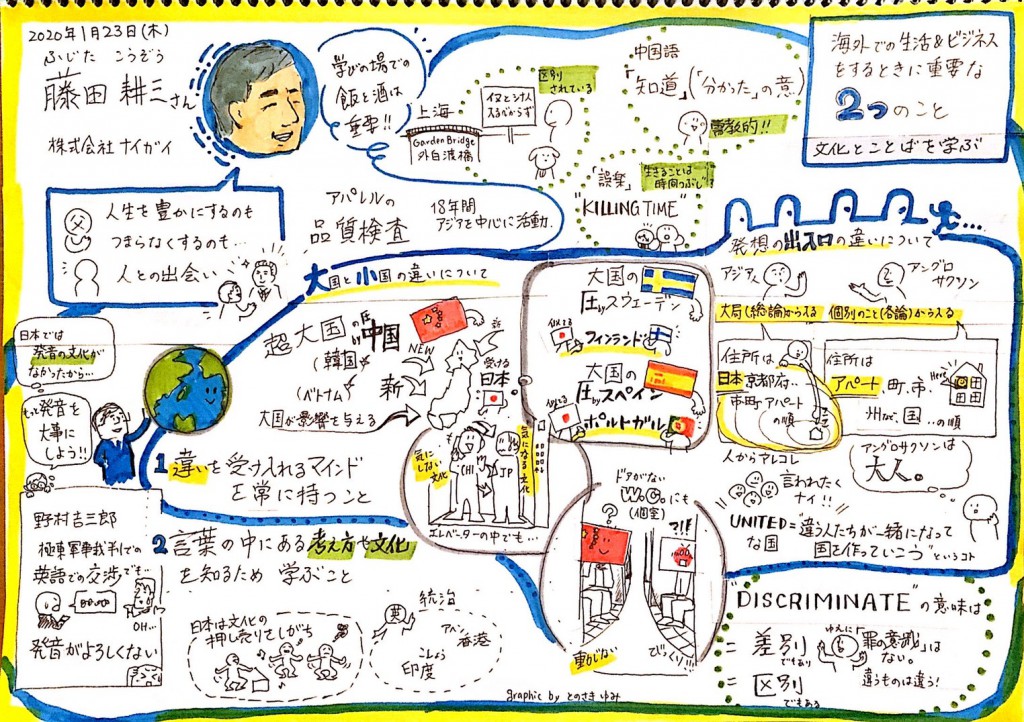 2020年1月23日(木)
ふじた こうぞう
藤田 耕三さん
株式会社 ナイガイ
学びの場での
飯と酒は
重要!!
上海
Garden Bridge
外白渡橋
イヌとシナ人
入るべからず
区別
されている
中国語
「知道」(「分かった」の意)
「娯楽」
生きることは
時間つぶし?
"KILLING TIME"
海外での生活&ビジネス
をするときに重要な
2つのこと
文化とことばを学ぶ
人生を豊かにするのも
つまらなくするのも…
人との出会い
父
アパレルの
品質検査
18年間
アジアを中心に活動.
大国と小国の違いについて
超大国の圧by中国
(韓国
(ベトナム
大国が影響を与える
NEW
新
受ける
日本
大国の
圧byスウェーデン
似てる
フィンランド
大国の
圧byスペイン
似てる
ポルトガル
発想の出入口の違いについて
アジア人
アングロ
サクソン
大局(総論)からうえる
個別のこと(各論)からうえる
住所は
日本 京都府…
市・町・アパート
の順
住所は
アパート 町、市
Here
州など、国 …の順
人からアレコレ
言われたく
ナイ!!
アングロサクソンは
大人。
UNITED = "違う人たちが一緒になって
な国
国を作っていこう"というコト
日本では
発音の文化が
なかったから…
もっと発音を
大事に
しよう!!
1 違いを受け入れるマインド
を常に持つこと
2 言葉の中にある考え方や文化
を知るため 学ぶこと
気に
しない
文化
気になる文化
CHI
JP
エレベーターの中でも…
ドアがない
W.C.にも
(個室)
?
?!!
動じない
びっくり!!!
野村吉三郎
極東軍事裁判での
英語での交渉でも…
OH…
発音がよろしくない
日本は文化の
押し売りしてしがち
英
統治
アヘン
香港
こしょう
印度
"DISCRIMINATE"の意味は
= 差別
でもあり
= 区別
でもある
ゆえに「罪の意識」は
ない。
違うものは違う!
graphic by とのさきゆみ